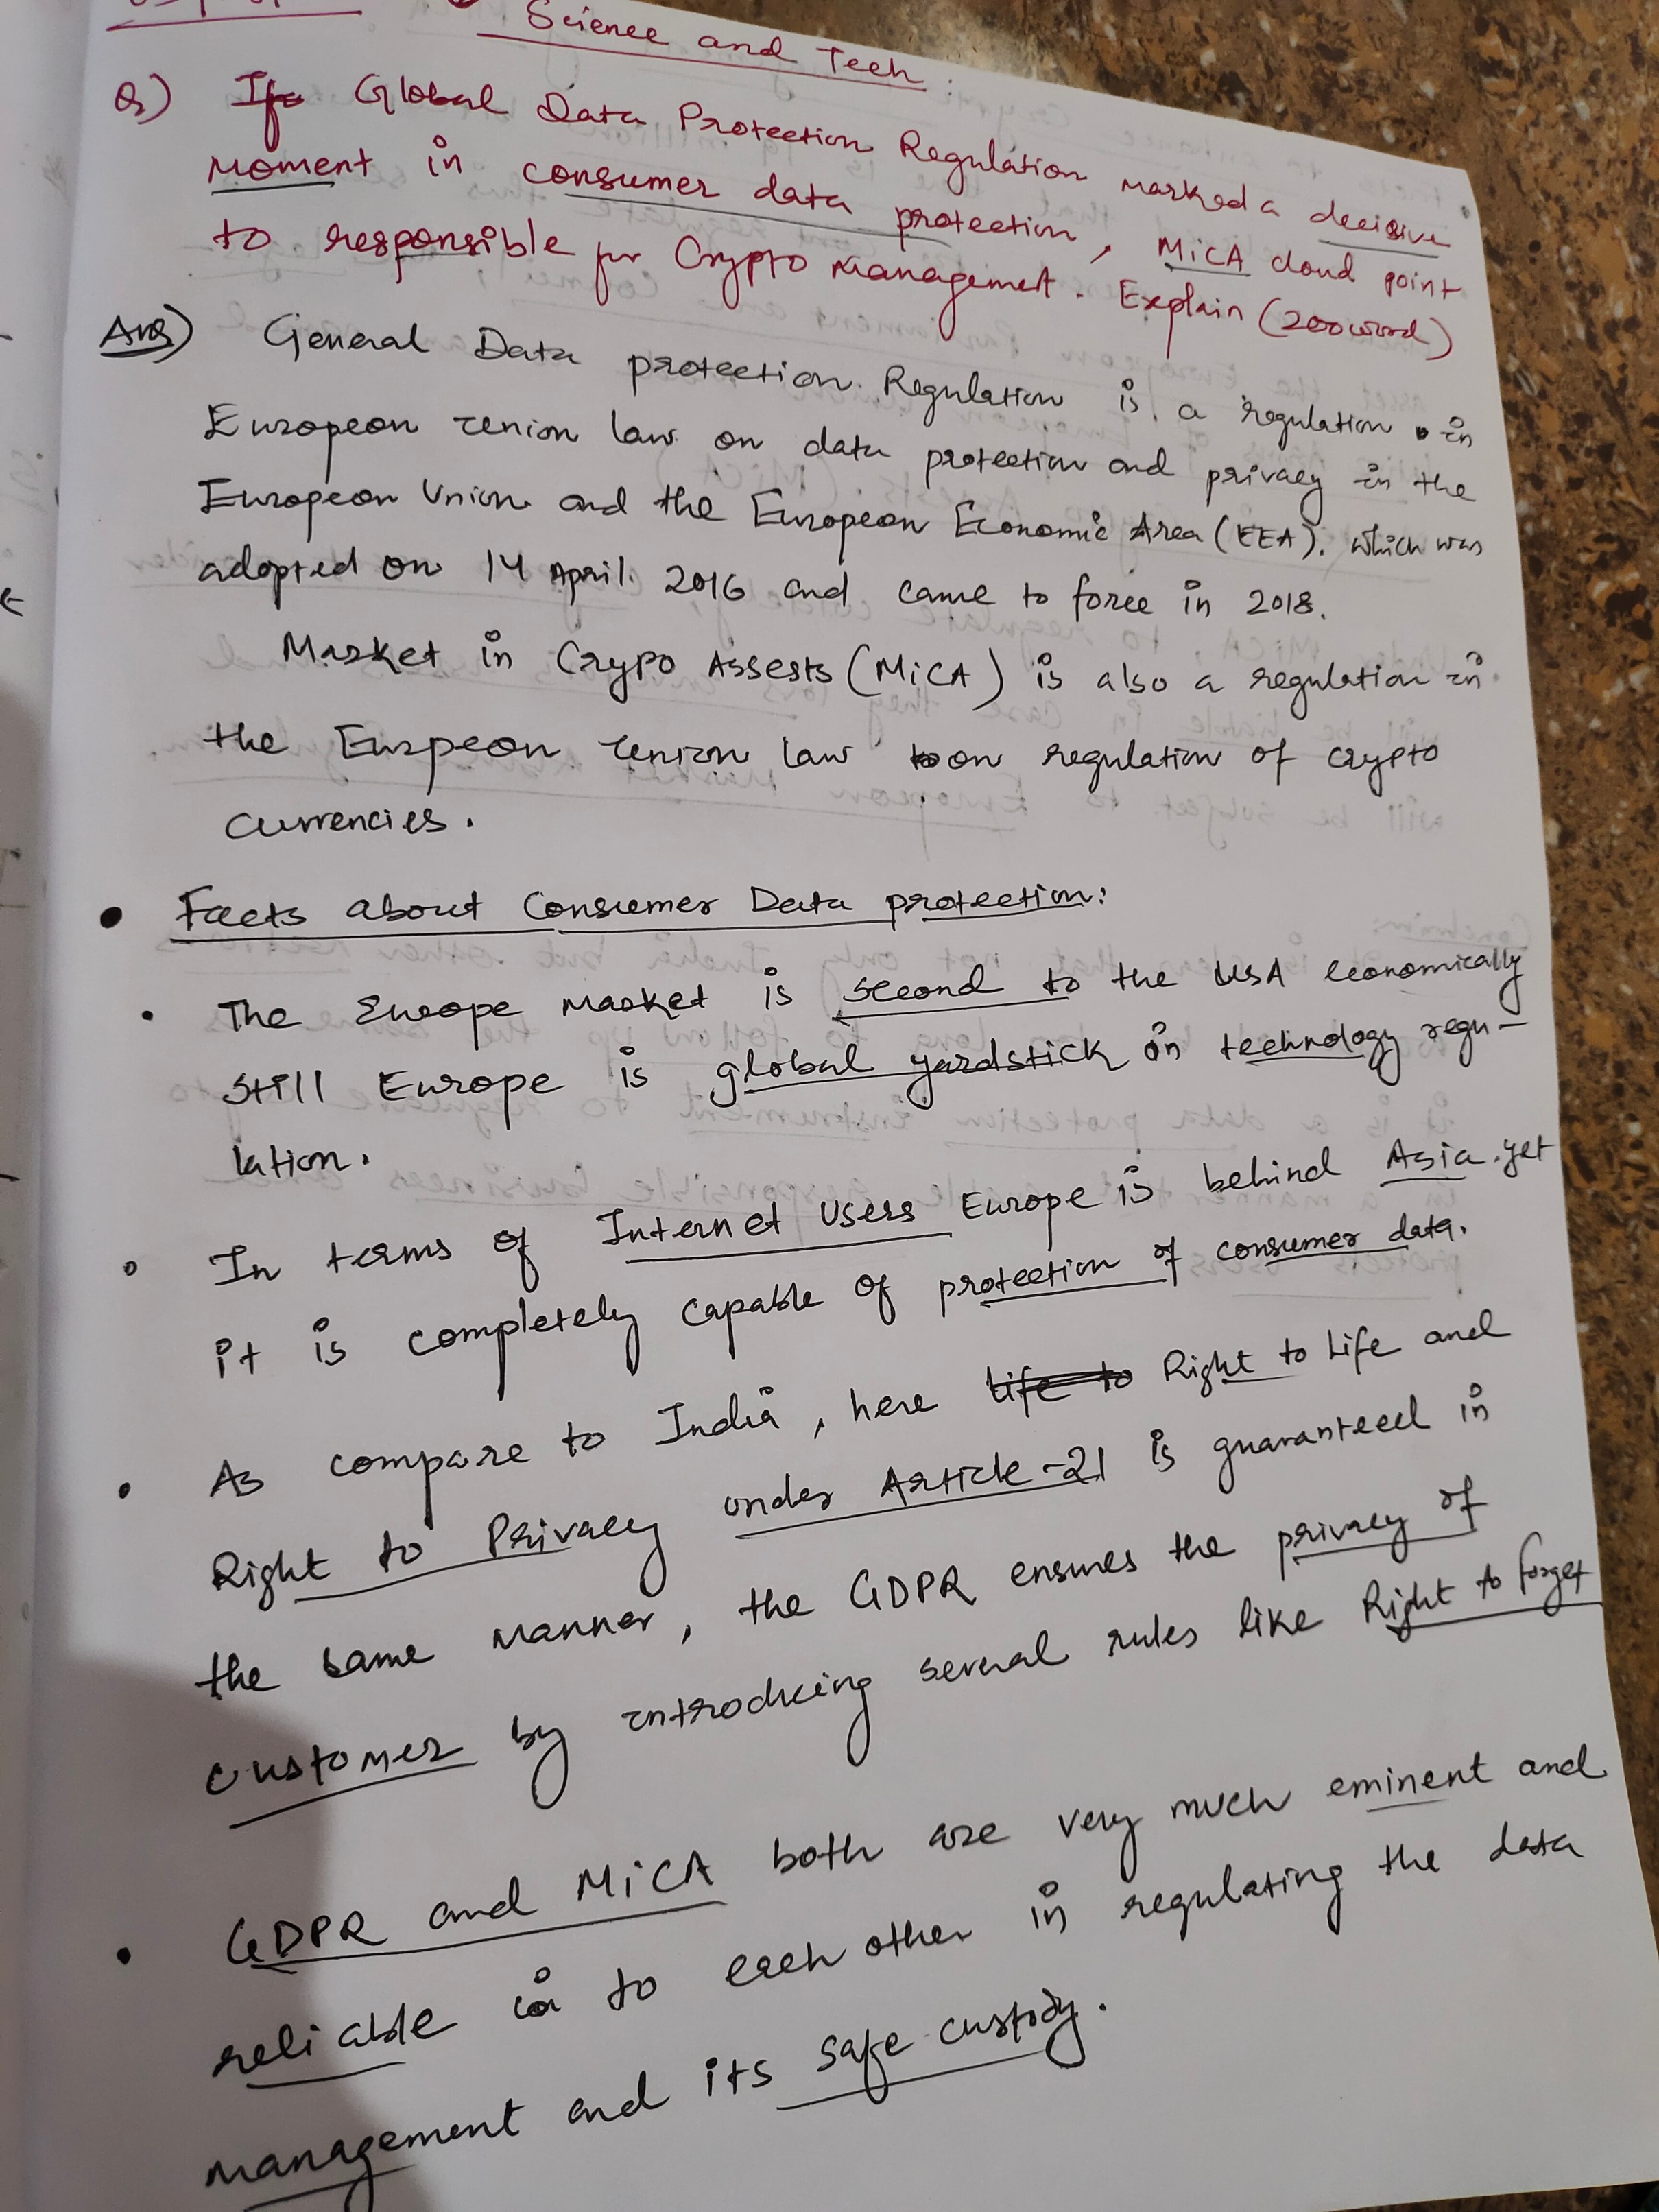 Science and Tech :
Q) If Global Data Protection Regulation marked a decisive
moment in consumer data protection, MiCA cloud point
to responsible for Crypto Management. Explain (200 word)
Ans) General Data protection Regulation is a regulation in
European Union law on data protection and privacy in the
European Union and the European Economic Area (EEA). Which was
adopted on 14 April 2016 and came to force in 2018.
Market in Crypo Assests (MiCA) is also a regulation in
the Eurpeon Union law on regulation of crypto
currencies.
• Facts about Consumer Data protection:
• The Europe Market is second to the USA economically
still Europe is global yardstick in technology regu-
lation.
• In terms of Internet Users Europe is behind Asia. yet
it is completely capable of protection of consumer data.
• As compare to India, here life to Right to Life and
Right to Privacy under Article-21 is guaranteed in
the same manner, the GDPR ensures the privacy of
customer by introducing several rules like Right to forget
• GDPR and MiCA both are very much eminent and
reliable to each other in regulating the data
management and its safe custody.